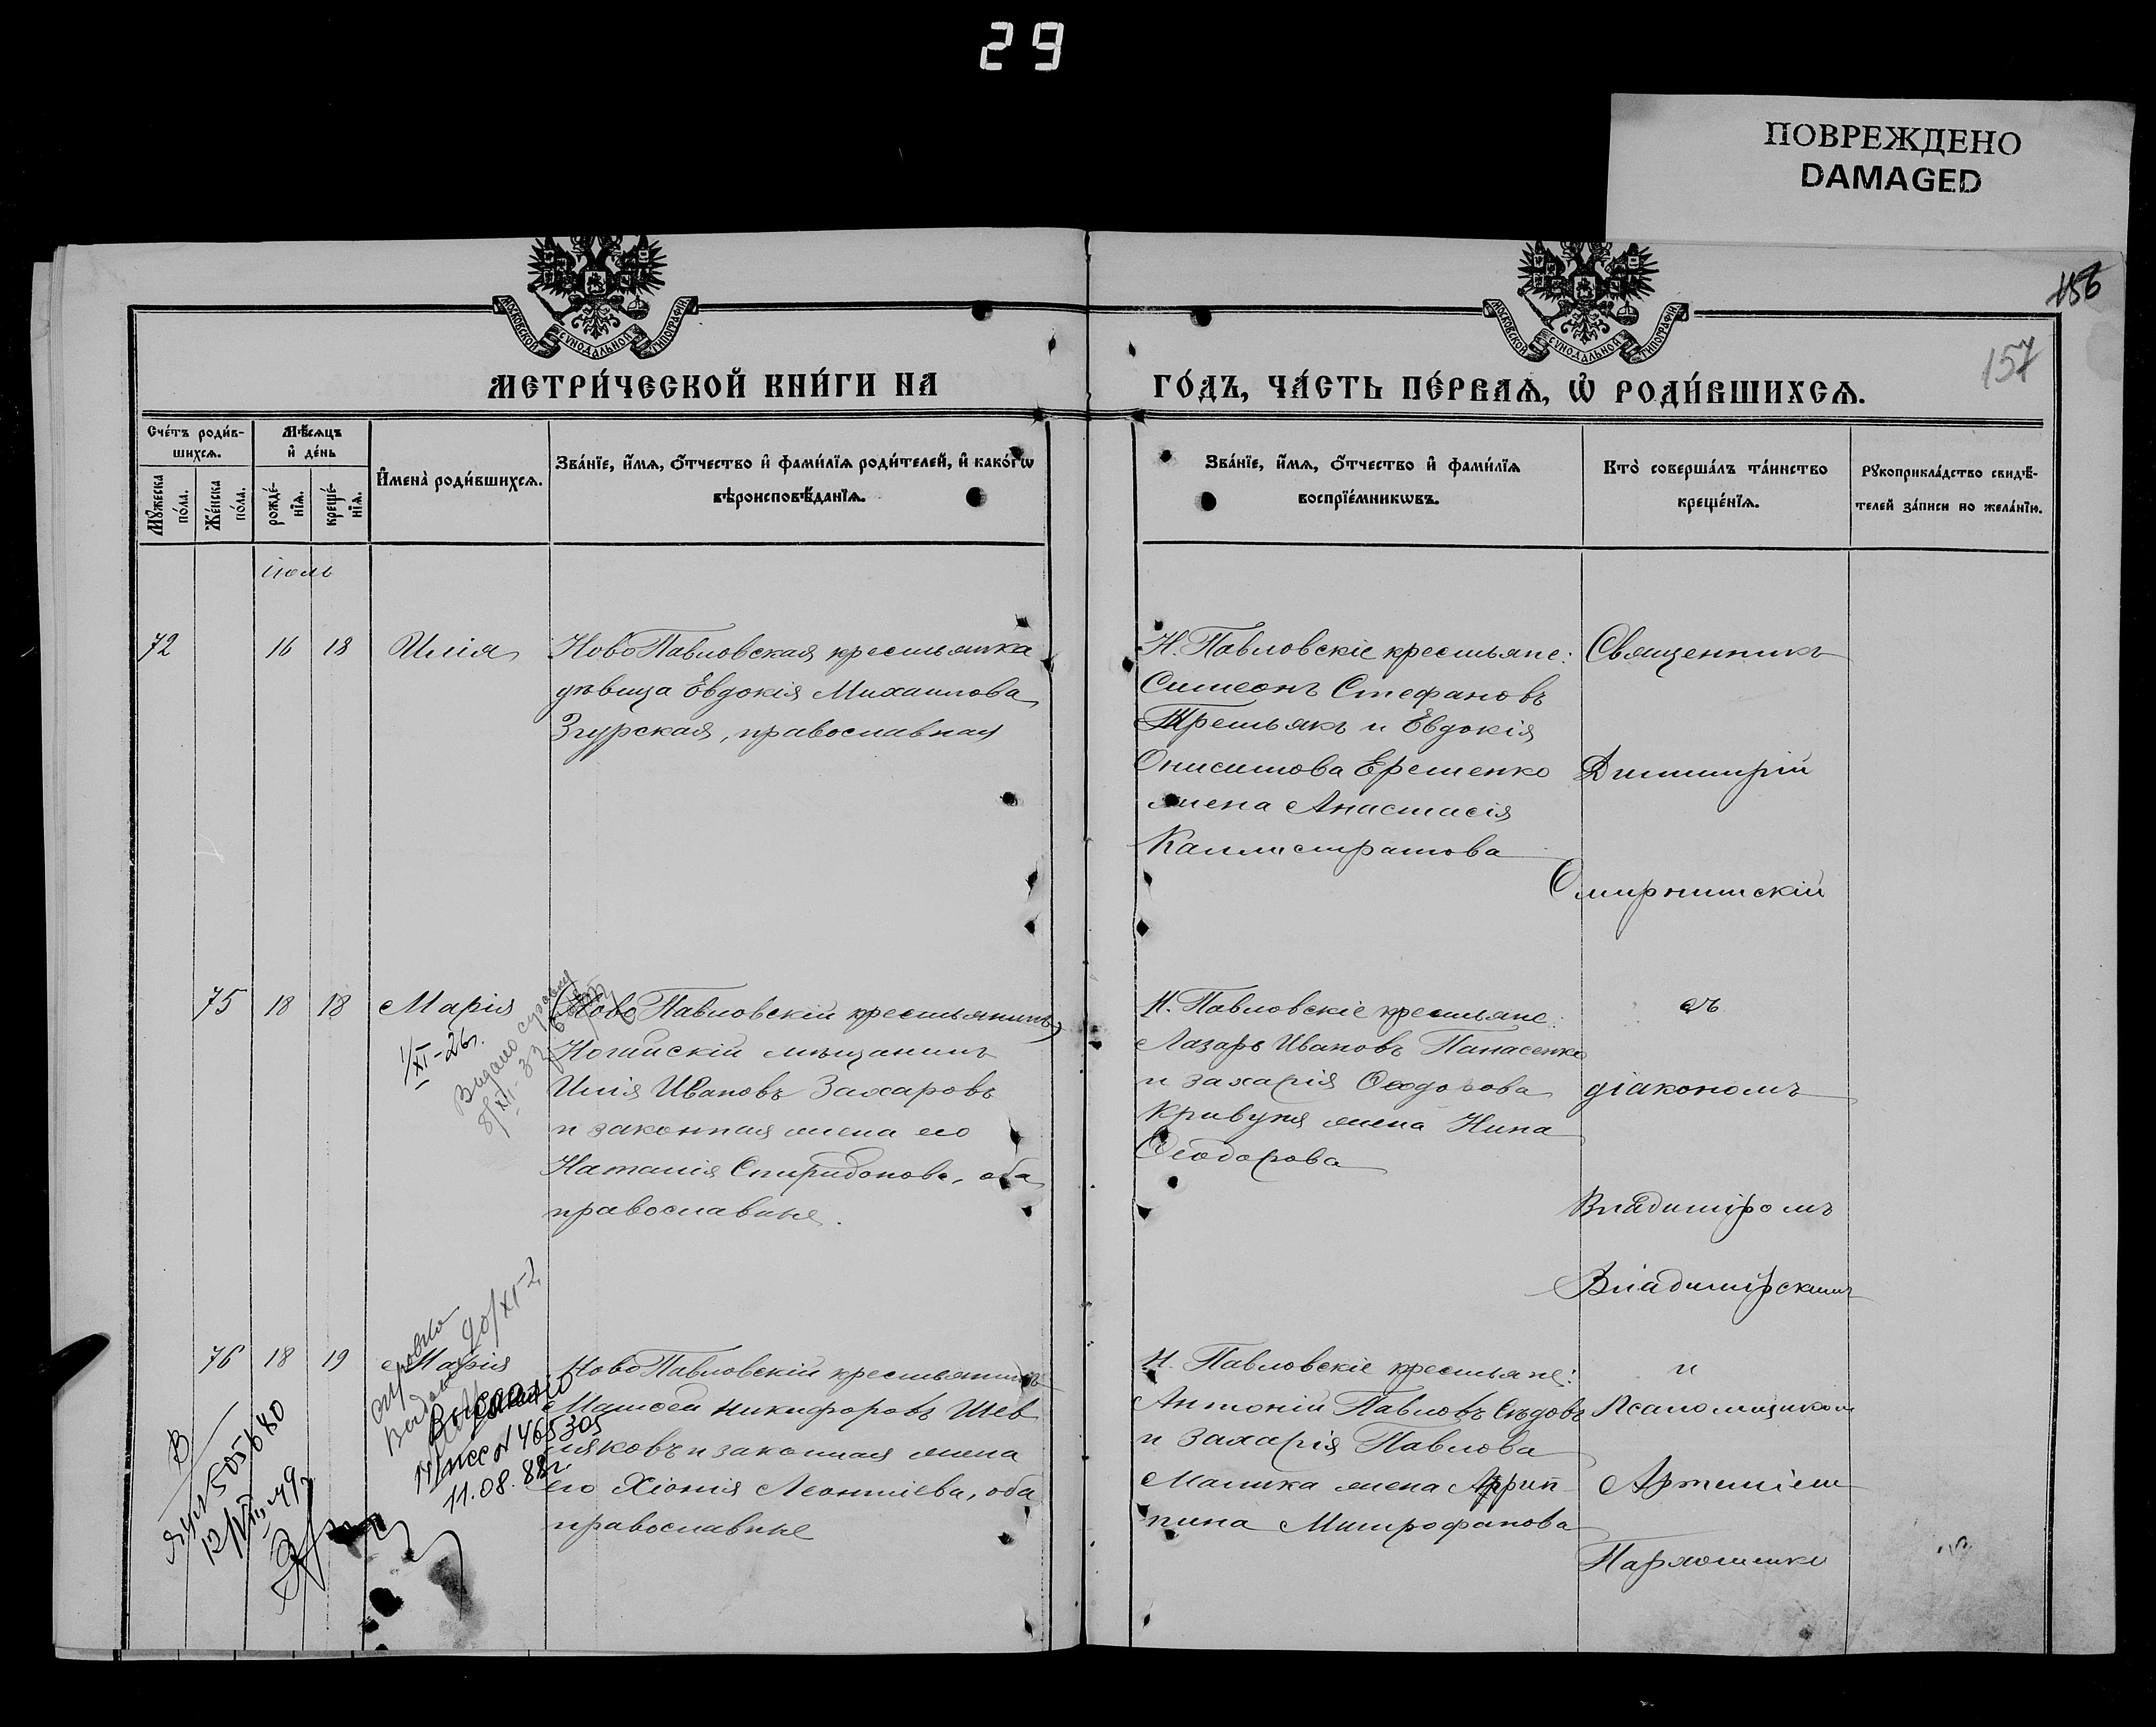 29
ПОВРЕЖДЕНО
DAMAGED
156
157
МОСКОВСКОЙ СУНОДАЛЬНОЙ ТИПОГРАФІИ
МОСКОВСКОЙ СУНОДАЛЬНОЙ ТИПОГРАФІИ
МЕТРИ́ЧЕСКОЙ КНИ́ГИ НА
ГО́ДЪ, ЧА́СТЬ ПЕ́РВАѦ, Ѽ РОДИ́ВШИХСѦ.
Счéтъ роди́в-
шихсѧ.
Мꙋ́жеска по́ла.
Же́нска по́ла.
Мѣ́сѧцъ
и҆ де́нь
рожде́-нїѧ.
креще́-нїѧ.
И҆мена̀ роди́вшихсѧ.
Зва́нїе, и҆́мѧ, ѻ҆́тчество и҆ фами́лїѧ роди́телей, и҆ како́гѡ
вѣроисповѣ́данїѧ.
Зва́нїе, и҆́мѧ, ѻ҆́тчество и҆ фами́лїѧ
воспрїе́мникѡвъ.
Кто̀ соверша́лъ та́инство
креще́нїѧ.
Рꙋкоприкла́дство свидѣ́-
телей за́писи по жела́нїю.
іюль
72 16 18 Илія
Ново Павловская крестьянка
дѣвица Евдокія Михаилова
Згурская, православная
Н. Павловскіе крестьяне:
Симеонъ Стефановъ
Третьякъ и Евдокія
Онисимова Еременко
жена Анастасія
Каллистратова
Священникъ
Димитрій
Смирнитскій
75 18 18 Марія
1/XI-26г.
Выдано справку
8/XII-33
Ново Павловскій крестьянинъ
Ногайскій мѣщанинъ
Илія Ивановъ Захаровъ
и законная жена его
Наталія Спиридонова, оба
православные.
Н. Павловскіе крестьяне:
Лазарь Ивановъ Панасенко
и Захарія Ѳеодорова
Кривуня жена Нина
Ѳеодорова
съ
діакономъ
Владиміромъ
Владимірскимъ
76 18 19 Марія
Выдано
465305
11.08.88г
505680
12/VIII-49г
Ново Павловскій крестьянинъ
Матѳей Никифоровъ Шев
ляковъ и законная жена
его Хіонія Леонтіева, оба
православные
Н. Павловскіе крестьяне:
Антоній Павловъ Сѣдовъ
и Захарія Павлова
Малика жена Агрип-
пина Митрофанова
и
Псаломщикомъ
Артеміем
Пархоменко